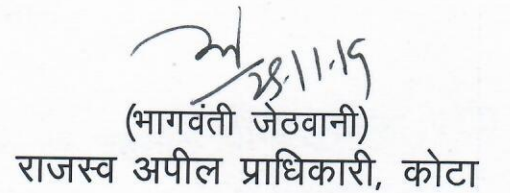 28.11.19
(भागवंती जेठवानी)
राजस्व अपील प्राधिकारी, कोटा